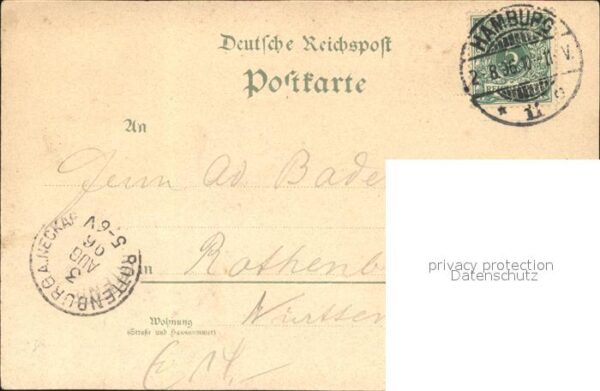 Deutsche Reichspost
Postkarte
HAMBURG
2.8.96. 10-11 V.
* 11 e
An
Herrn Ad. Bade
ROTTENBURG A. NECKAR
3
AUG
96
5-6V
in Rothenb
Württem
Wohnung
(Straße und Hausnummer)
privacy protection
Datenschutz